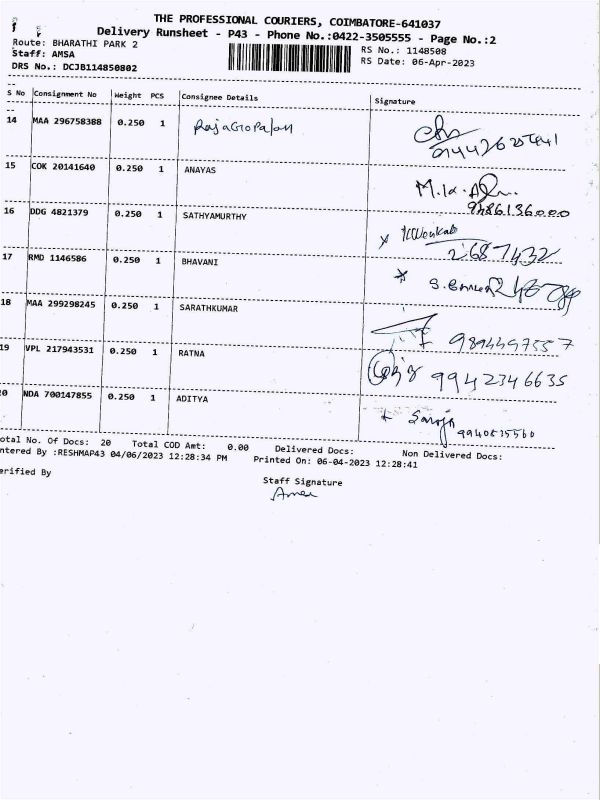 THE PROFESSIONAL COURIERS, COIMBATORE-641037
Delivery Runsheet - P43 - Phone No.:0422-3505555 - Page No.:2
Route: BHARATHI PARK 2
RS No.: 1148508
Staff: AMSA
RS Date: 06-Apr-2023
DRS No.: DCJB114850802
S No Consignment No Weight PCS Consignee Details Signature
14 MAA 296758388 0.250 1 RajaGoPalan
15 COK 20141640 0.250 1 ANAYAS
9486136000
16 DDG 4821379 0.250 1 SATHYAMURTHY
2687432
17 RMD 1146586 0.250 1 BHAVANI
18 MAA 299298245 0.250 1 SARATHKUMAR
9894497557
19 VPL 217943531 0.250 1 RATNA
9942346635
20 NDA 700147855 0.250 1 ADITYA
Saroja
9940835560
otal No. Of Docs: 20 Total COD Amt: 0.00 Delivered Docs: Non Delivered Docs:
ntered By :RESHMAP43 04/06/2023 12:28:34 PM Printed On: 06-04-2023 12:28:41
erified By
Staff Signature